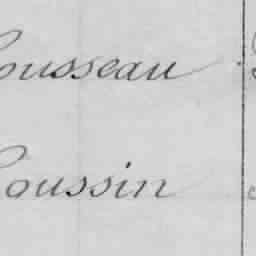 ousseau
oussin